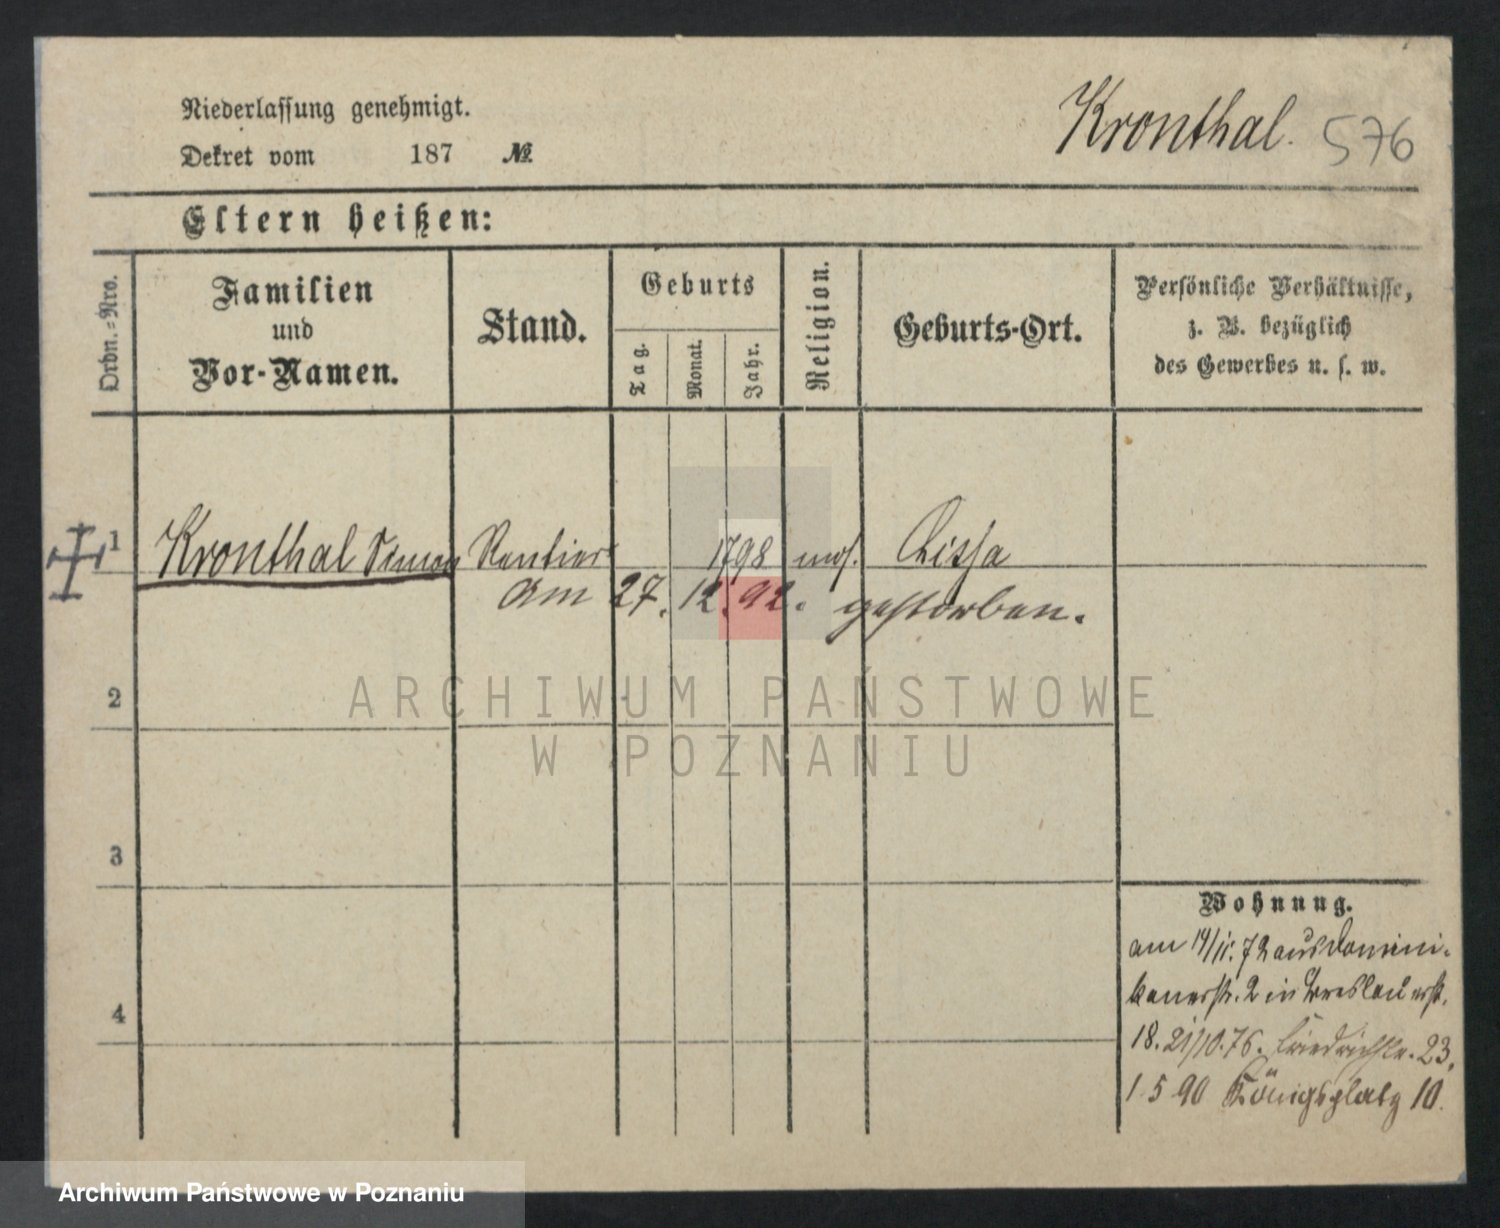 Niederlassung genehmigt.
Dekret vom 187 №
Kronthal. 576
Eltern heißen:
Ordn.=Nro.
Familien
und
Vor-Namen.
Stand.
Geburts
Tag.
Monat.
Jahr.
Religion.
Geburts-Ort.
Persönliche Verhältnisse,
z. B. bezüglich
des Gewerbes u. s. w.
1 Kronthal Simon Rentier 1798 mos. Lissa
am 27. 12. 92. gestorben.
2
ARCHIWUM PAŃSTWOWE
W POZNANIU
3
4
Wohnung.
am 14/11. 72 aus Domini-
kanerstr. 2 in Breslauerst.
18. 21/10. 76. Friedrichstr. 23,
1 5 90 Königsplatz 10.
Archiwum Państwowe w Poznaniu